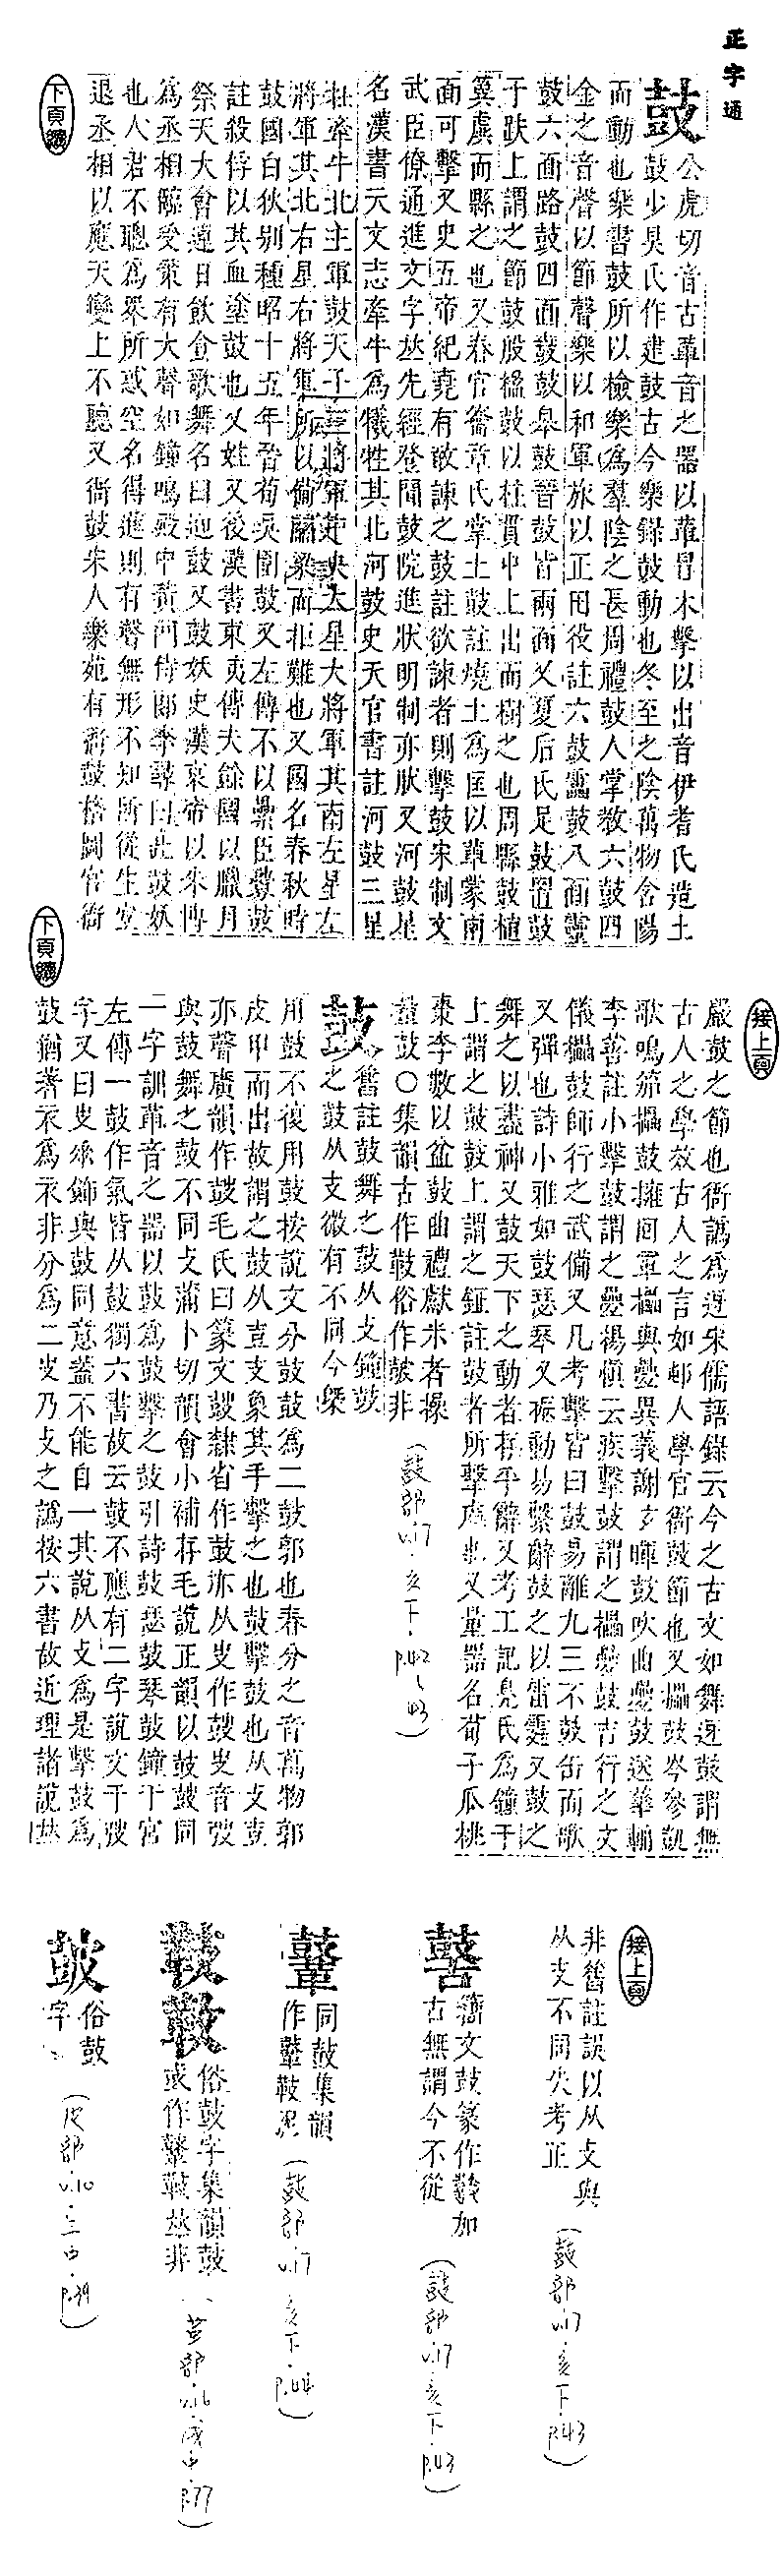 正字通
鼓
公虎切音古革音之器以革冒木擊以出音伊耆氏造土
鼓少昊氏作建鼓古今樂錄鼓動也冬至之陰萬物含陽
而動也樂書鼓所以檢樂爲羣陰之長周禮鼓人掌敎六鼓四
金之音聲以節聲樂以和軍旅以正田役註六鼓靁鼓八面靈
鼓六面路鼓四面鼖鼓皋鼓晉鼓皆兩面又夏后氏足鼓置鼓
于趺上謂之節鼓殷楹鼓以柱貫中上出而樹之也周縣鼓植
簨虡而縣之也又春官籥章氏掌土鼓註燒土爲匡以革蒙南
面可擊又史五帝紀堯有敢諫之鼓註欲諫者則擊鼓宋制文
武臣僚通進文字𠀤先經登聞鼓院進狀明制亦肰又河鼓星
名漢書天文志牽牛爲犧牲其北河鼓史天官書註河鼓三星
在牽牛北主軍鼓天子三將軍中央大星大將軍其南左星左
將軍其北右星右將軍所以備關梁而拒難也又國名春秋時
鼓國白狄別種昭十五年晉荀吳圍鼓又左傳不以纍臣釁鼓
註殺俘以其血塗鼓也又姓又後漢書東夷傳夫餘國以臘月
祭天大會連日飮食歌舞名曰迎鼓又鼓妖史漢哀帝以朱博
爲丞相臨受策有大聲如鐘鳴殿中黃門侍郞李尋曰此鼓妖
也人君不聰爲衆所惑空名得進則有聲無形不知所從生宜
退丞相以應天變上不聽又衙鼓宋人樂苑有衙鼓格圖官衙
下頁續
接上頁
嚴鼓之節也衙譌爲迓宋儒語錄云今之古文如舞迓鼓謂無
古人之學效古人之言如邨人學官衙鼓節也又攂鼓岑參凱
歌鳴笳攂鼓擁囘軍攂與疊異義謝玄暉鼓吹曲疊鼓送華輈
李善註小擊鼓謂之疊楊愼云疾擊鼓謂之攂疊鼓吉行之文
儀攂鼓師行之武備又凡考擊皆曰鼓易離九三不鼓缶而歌
又彈也詩小雅如鼓瑟琴又振動易繫辭鼓之以雷霆又鼓之
舞之以盡神又鼓天下之動者存乎辭又考工記鳧氏爲鐘于
上謂之鼓鼓上謂之鉦註鼓者所擊處也又量器名荀子瓜桃
棗李數以盆鼓曲禮獻米者操
量鼓○集韻古作鼔俗作皷非
(鼓部·v.17·亥下·p.42~43)
鼔
舊註鼓舞之鼓从攴鐘鼓
之鼓从支微有不同今槩
用鼓不復用鼔按說文分鼓鼔爲二鼓郭也春分之音萬物郭
皮甲而出故謂之鼓从壴支象其手擊之也鼔擊鼓也从攴壴
亦聲廣韻作皷毛氏曰篆文鼔隸省作鼓亦从叟作鼓叟音弢
與鼓舞之鼓不同攴蒲卜切韻會小補存毛說正韻以鼓鼔同
一字訓革音之器以鼓爲鼓擊之鼓引詩鼓瑟鼓琴鼓鐘于宮
左傳一鼓作氣皆从鼓獨六書故云鼓不應有二字說文于弢
字又曰叟垂飾與鼓同意蓋不能自一其說从攴爲是擊鼓爲
鼓猶著衣爲衣非分爲二叟乃攴之譌按六書故近理諸說𠀤
下頁續
接上頁
非舊註誤以从攴與
从支不同失考正
(鼓部·v.17·亥下·p.43)
籀文鼓篆作鼓加
古無謂今不從
(鼓部·v.17·亥下·p.43)
同鼓集韻
(鼓部·v.17·亥下·p.44)
俗鼓字集韻鼓
𠀤非
v.16·戌中·p.77)
皷
俗鼓
字
(皮部·v.10·p.39)